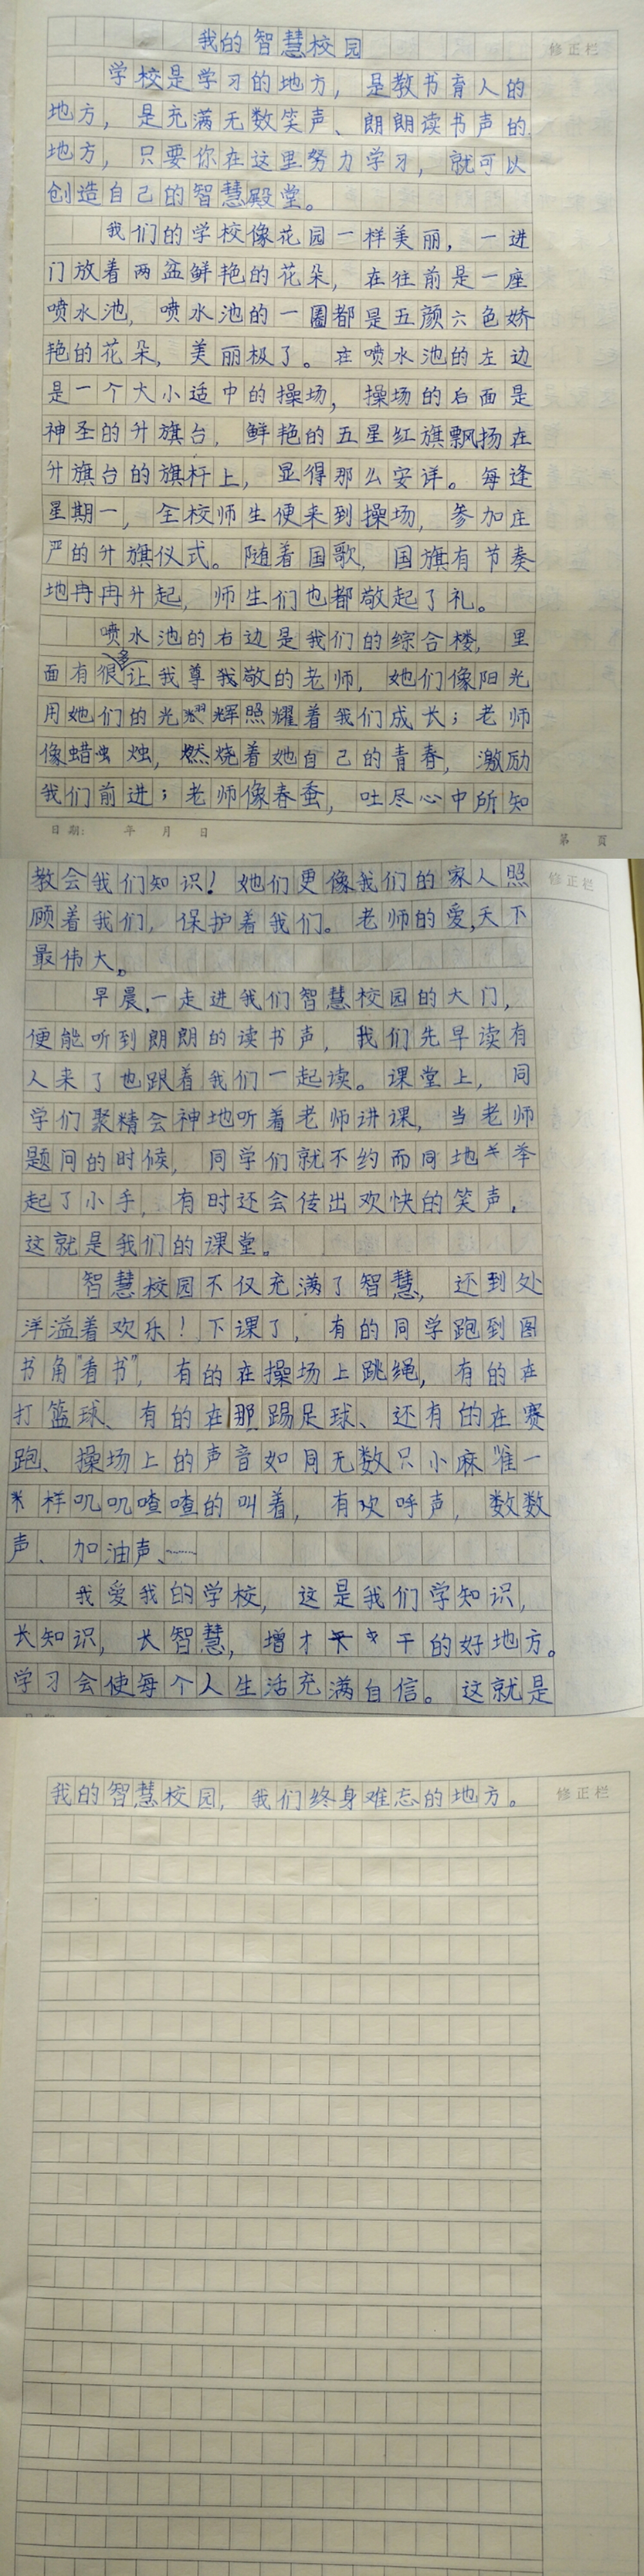 我的智慧校园
修正栏
学校是学习的地方，是教书育人的
地方，是充满无数笑声、朗朗读书声的
地方，只要你在这里努力学习，就可以
创造自己的智慧殿堂。
我们的学校像花园一样美丽，一进
门放着两盆鲜艳的花朵，在往前是一座
喷水池，喷水池的一圈都是五颜六色娇
艳的花朵，美丽极了。在喷水池的左边
是一个大小适中的操场，操场的右面是
神圣的升旗台，鲜艳的五星红旗飘扬在
升旗台的旗杆上，显得那么安详。每逢
星期一，全校师生便来到操场，参加庄
严的升旗仪式。随着国歌，国旗有节奏
地冉冉升起，师生们也都敬起了礼。
喷水池的右边是我们的综合楼，里
面有很多让我尊我敬的老师，她们像阳光
用她们的光辉照耀着我们成长；老师
像蜡烛，燃烧着她自己的青春，激励
我们前进；老师像春蚕，吐尽心中所知
日期： 年 月 日
第 页
教会我们知识！她们更像我们的家人照
修正栏
顾着我们，保护着我们。老师的爱，天下
最伟大。
早晨，一走进我们智慧校园的大门，
便能听到朗朗的读书声，我们先早读有
人来了也跟着我们一起读。课堂上，同
学们聚精会神地听着老师讲课，当老师
题问的时候，同学们就不约而同地举
起了小手，有时还会传出欢快的笑声，
这就是我们的课堂。
智慧校园不仅充满了智慧，还到处
洋溢着欢乐！下课了，有的同学跑到图
书角“看书”，有的在操场上跳绳，有的在
打篮球、有的在那踢足球、还有的在赛
跑、操场上的声音如同无数只小麻雀一
样叽叽喳喳的叫着，有欢呼声，数数
声、加油声、……
我爱我的学校，这是我们学知识，
长知识，长智慧，增才干的好地方。
学习会使每个人生活充满自信。这就是
我的智慧校园，我们终身难忘的地方。
修正栏